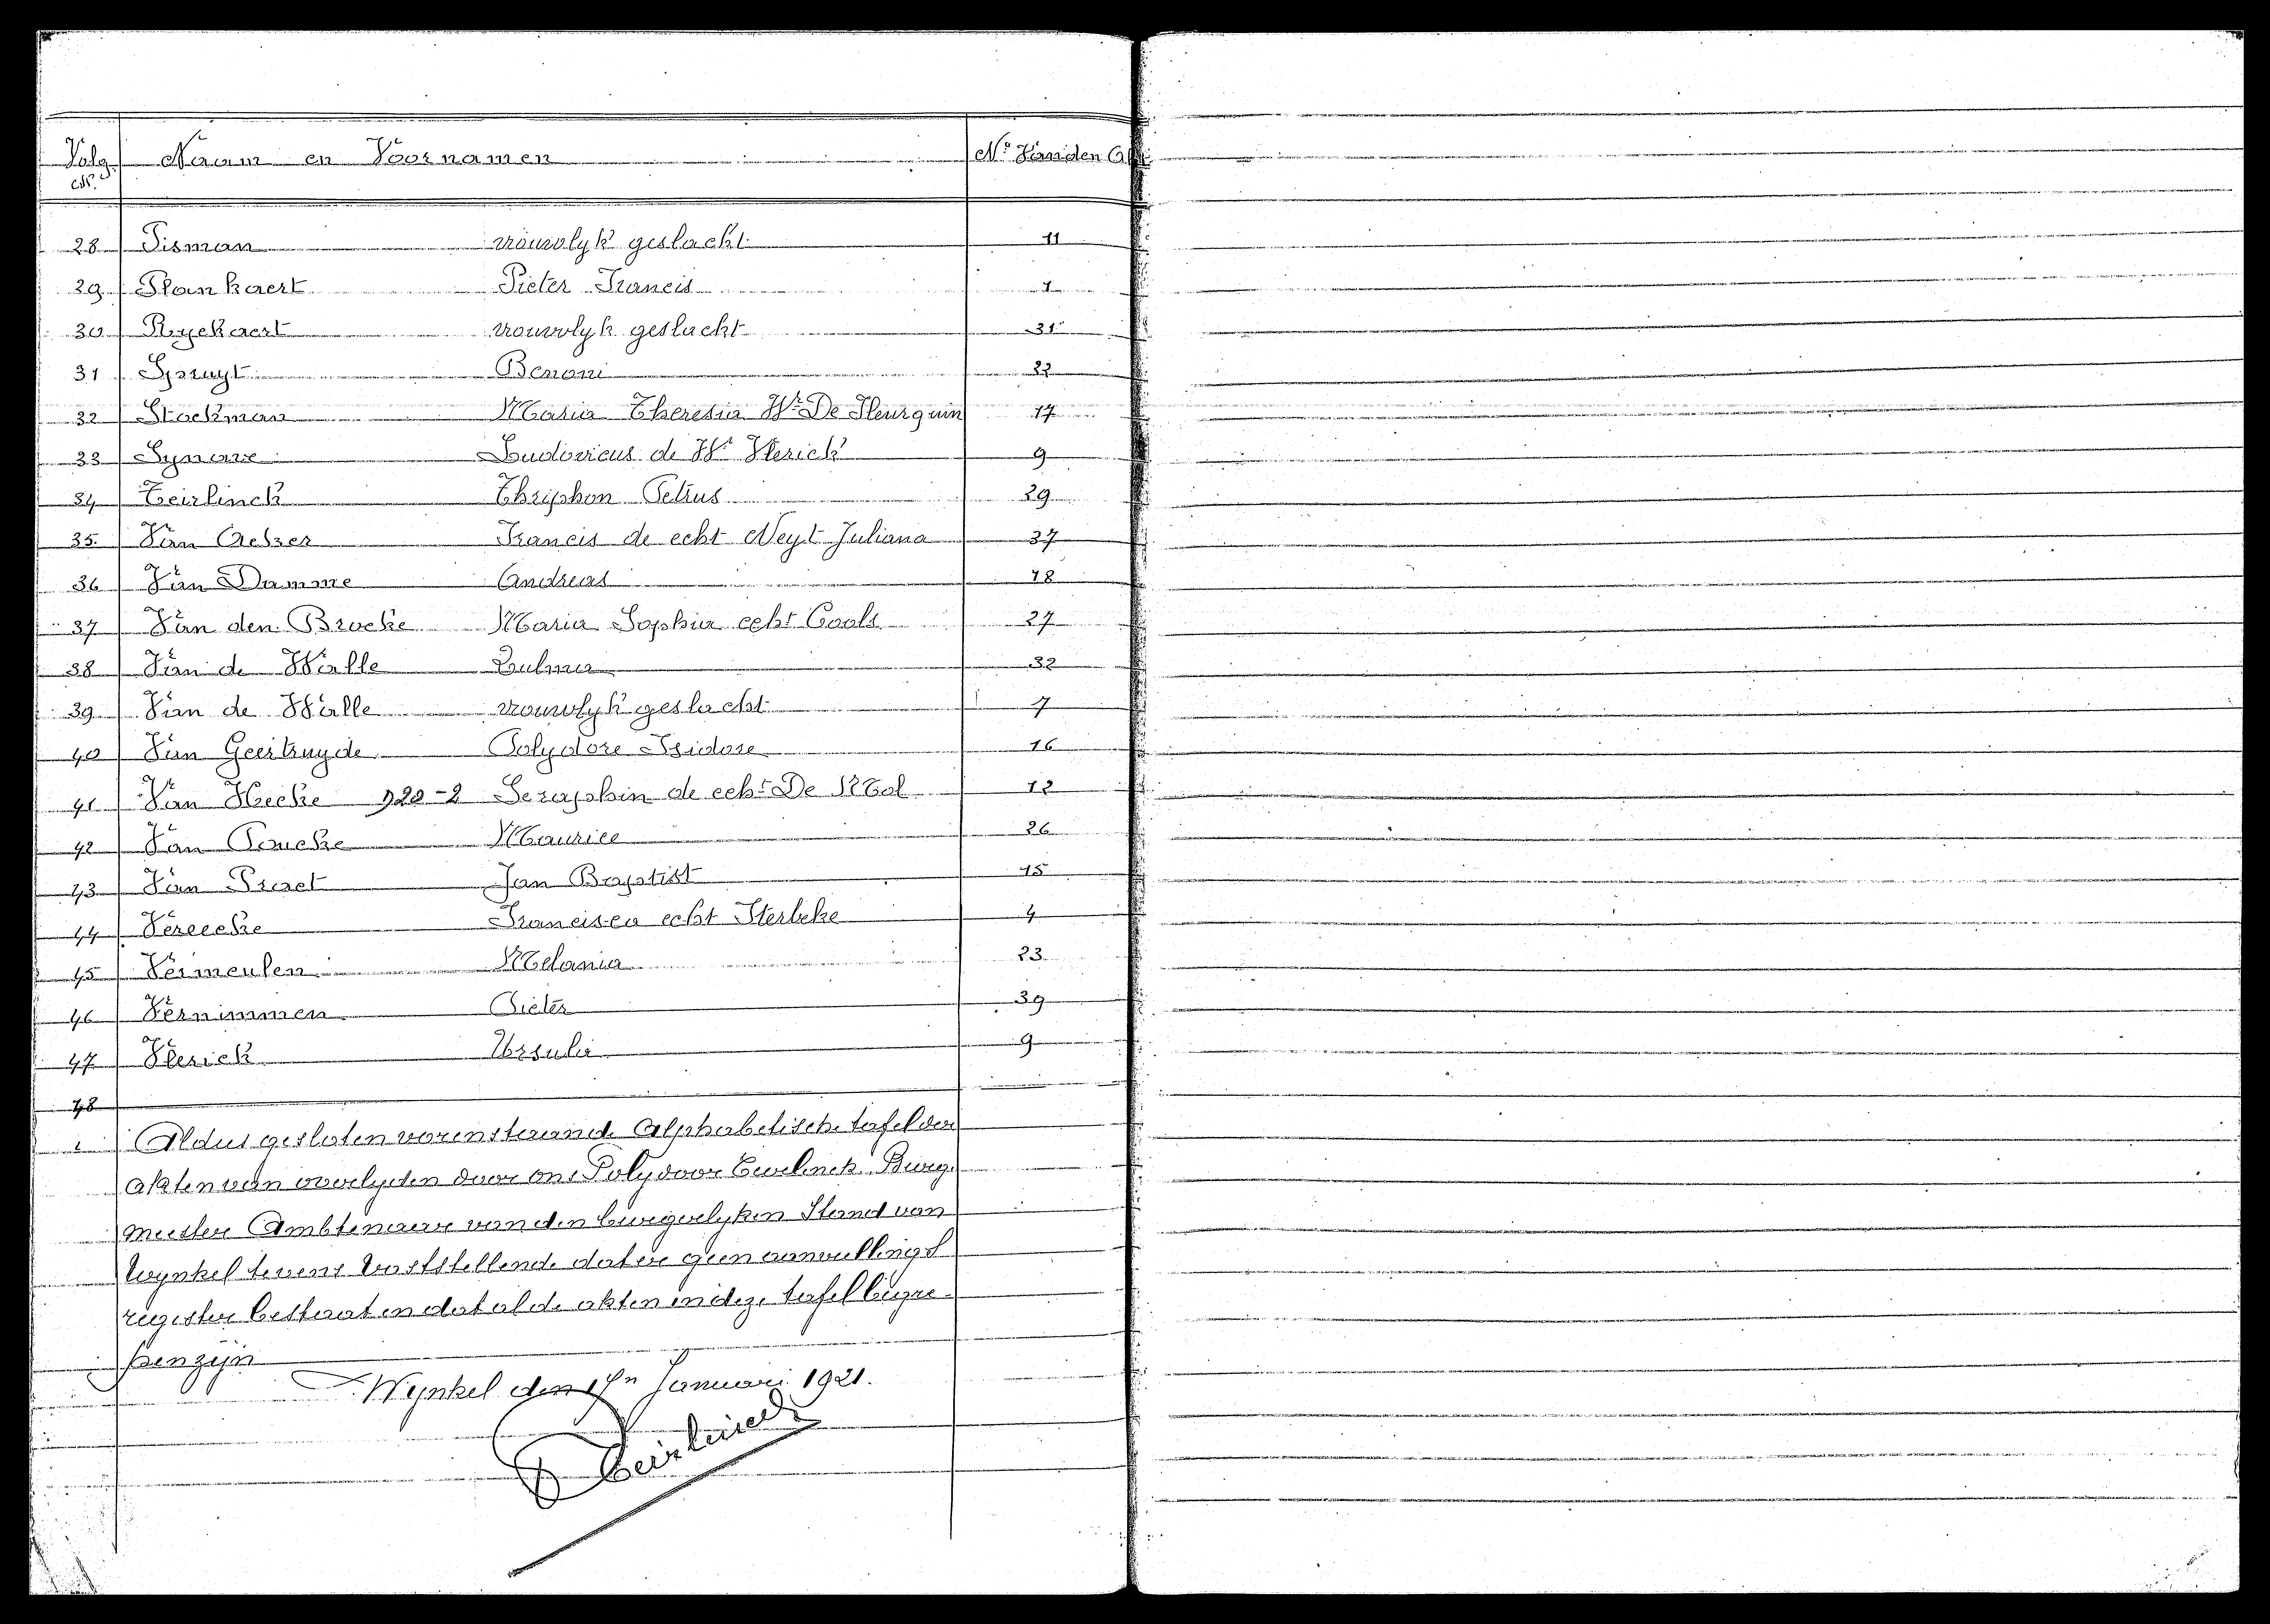 Volg. Nr. Naam en Voornamen N° Van den Akt
28 Pisman vrouwlyk geslacht 11
29 Plankaert Pieter Francis 1
30 Ryckaert vrouwlyk geslacht 31
31 Spruyt Benoni 22
32 Stockman Maria Theresia We De Fleurquin 17
33 Synave Ludovicus de We Vlerick 9
34 Teirlinck Thriphon Petrus 29
35 Van Acker Francis de echt Neyt Juliana 37
36 Van Damme Andreas 18
37 Van den Broeke Maria Sophia echt Cools 27
38 Van de Walle Zulma 32
39 Van de Walle vrouwlyk geslacht 7
40 Van Geertruyde Polydore Isidore 16
41 Van Hecke 920-2 Seraphin de echt De Mol 12
42 Van Poucke Maurice 26
43 Van Praet Jan Baptist 15
44 Vereecke Francisca echt Sterbeke 4
45 Vermeulen Melania 23
46 Vernimmen Pieter 39
47 Vlerick Ursula 9
48
Aldus gesloten vorenstaande Alphabetische tafel der
akten van overlyden door ons Polydoor Teirlinck Burg.
meester Ambtenaar van den burgerlyken Stand van
Wynkel tevens vaststellende dat er geen aanvullings
register bestaat en dat al de akten in deze tafel begre-
pen zijn
Wynkel den 1sn Januari 1921.
P Teirlinck